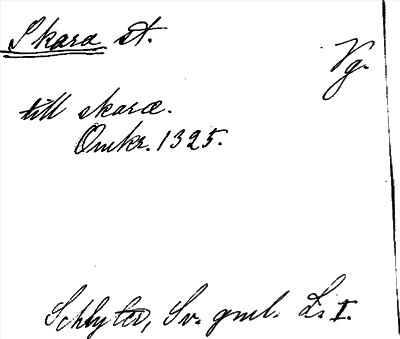 Skara st.
Vg.
till skaræ.
Omkr. 1325.
Schlyter, Sv. gml. L. I.